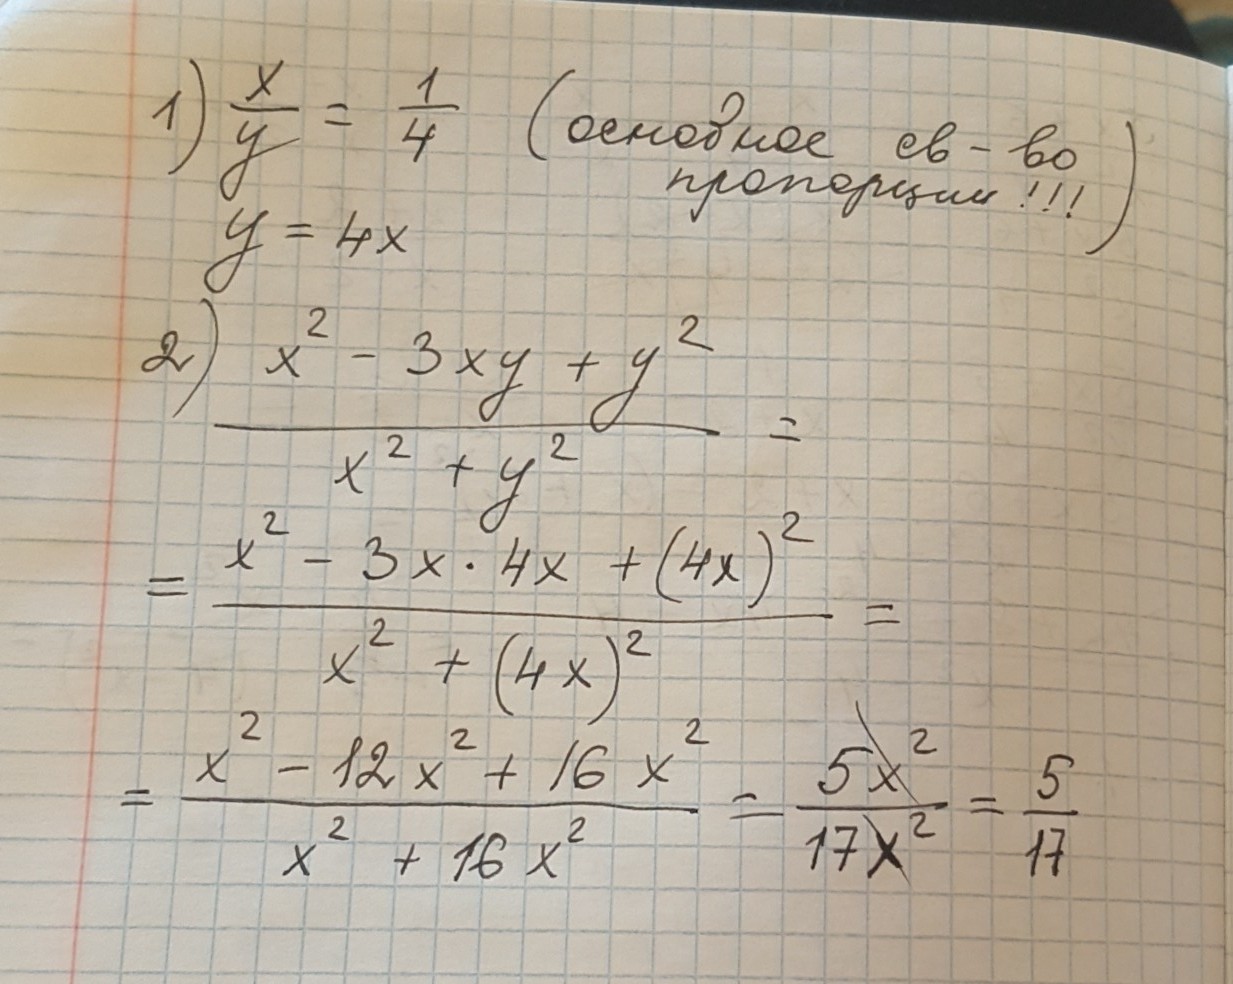 1) x/y = 1/4 (основное св-во
пропорции!!!)
y = 4x
2) (x² - 3xy + y²)/(x² + y²) =
= (x² - 3x · 4x + (4x)²)/(x² + (4x)²) =
= (x² - 12x² + 16x²)/(x² + 16x²) = 5x²/17x² = 5/17